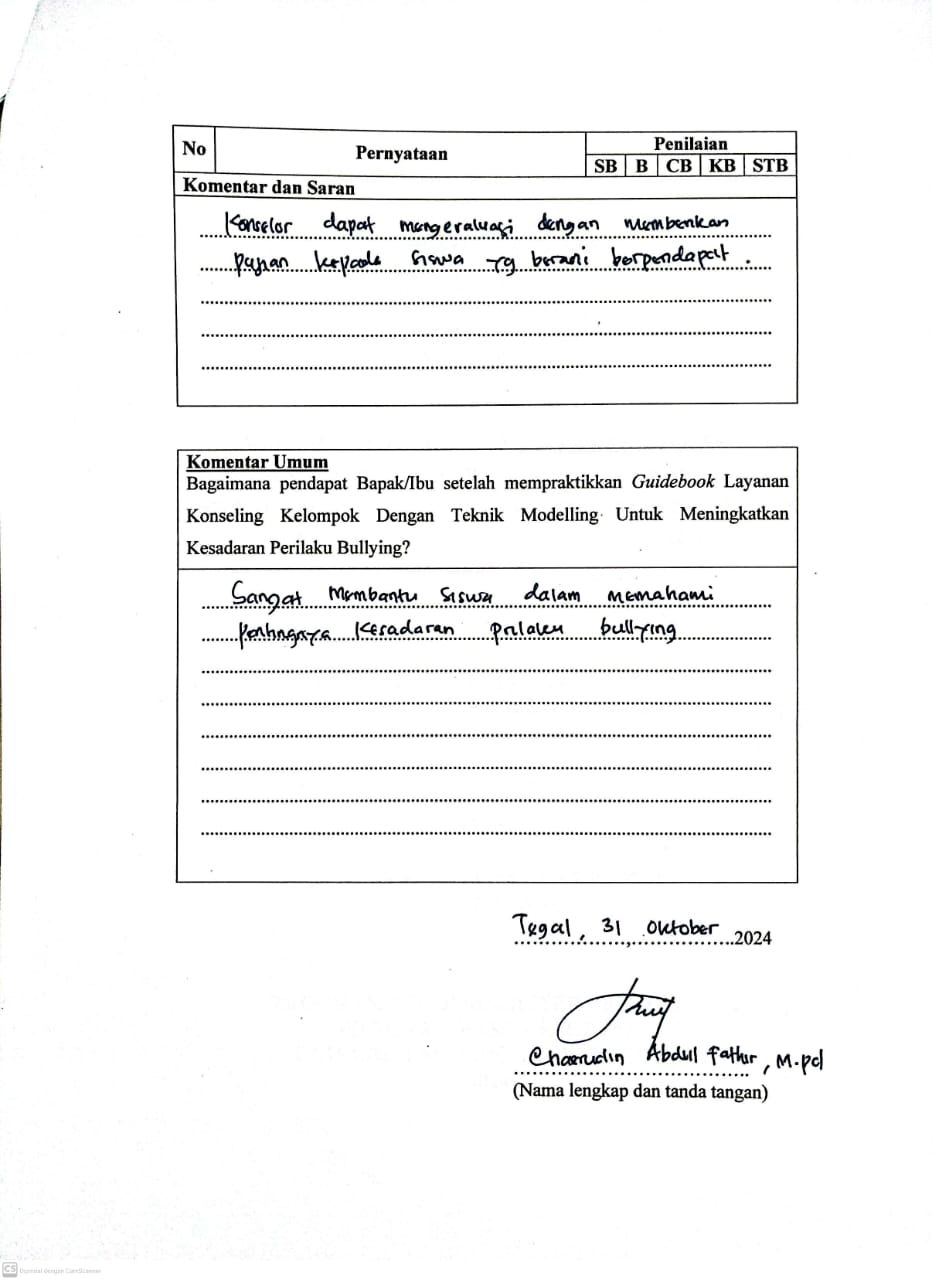 No Pernyataan Penilaian
SB B CB KB STB
Komentar dan Saran
Konselor dapat mengevaluasi dengan memberikan
pujian kepada siswa yg berani berpendapat.
Komentar Umum
Bagaimana pendapat Bapak/Ibu setelah mempraktikkan Guidebook Layanan
Konseling Kelompok Dengan Teknik Modelling Untuk Meningkatkan
Kesadaran Perilaku Bullying?
Sangat Membantu siswa dalam memahami
pentingnya Kesadaran prilaku bullying
Tegal, 31 Oktober 2024
Abdul Fathur, M.pd
(Nama lengkap dan tanda tangan)
CS Dipindai dengan CamScanner